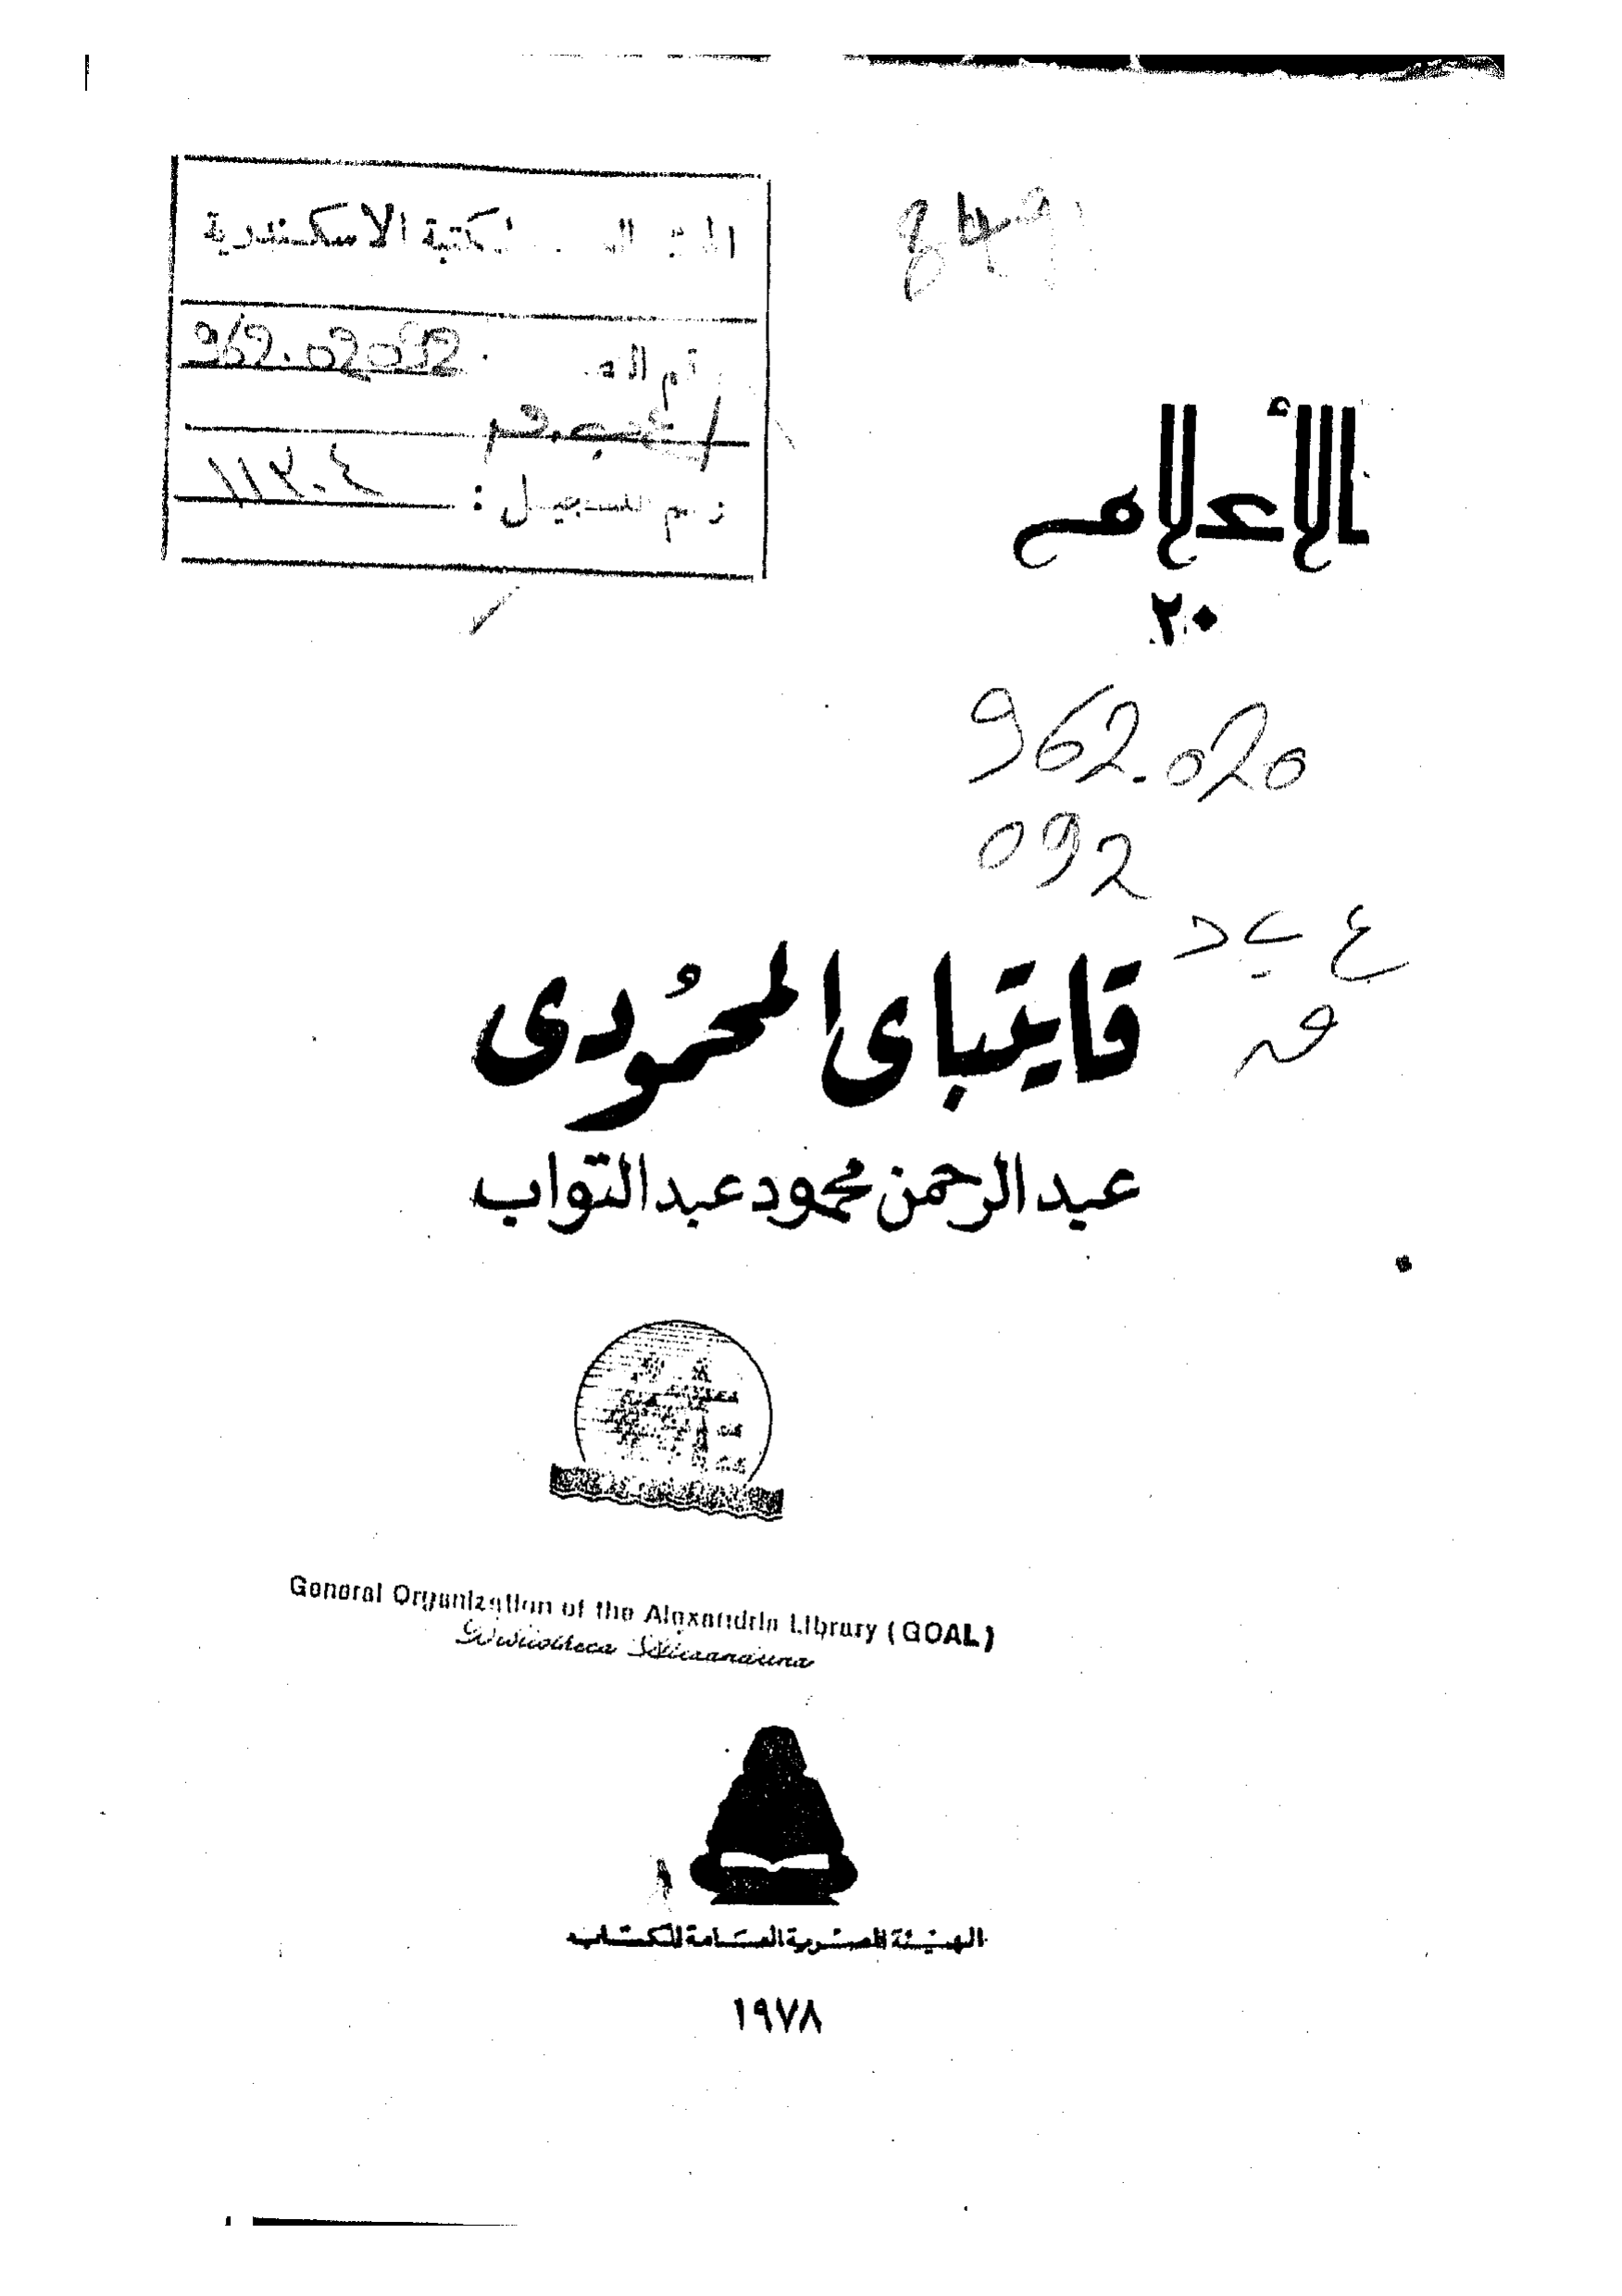 مكتبة الاسكندرية
962.02092
رقم التسجيل :
١١٣٠٤
849
الأعلام
٢٠
962.020
092
ع ب د
قايتباى المحمُودى
عبد الرحمن محمود عبد التواب
General Organization of the Alexandria Library (GOAL)
Bibliotheca Alexandrina
الهيئة المصرية العامة للكتاب
١٩٧٨